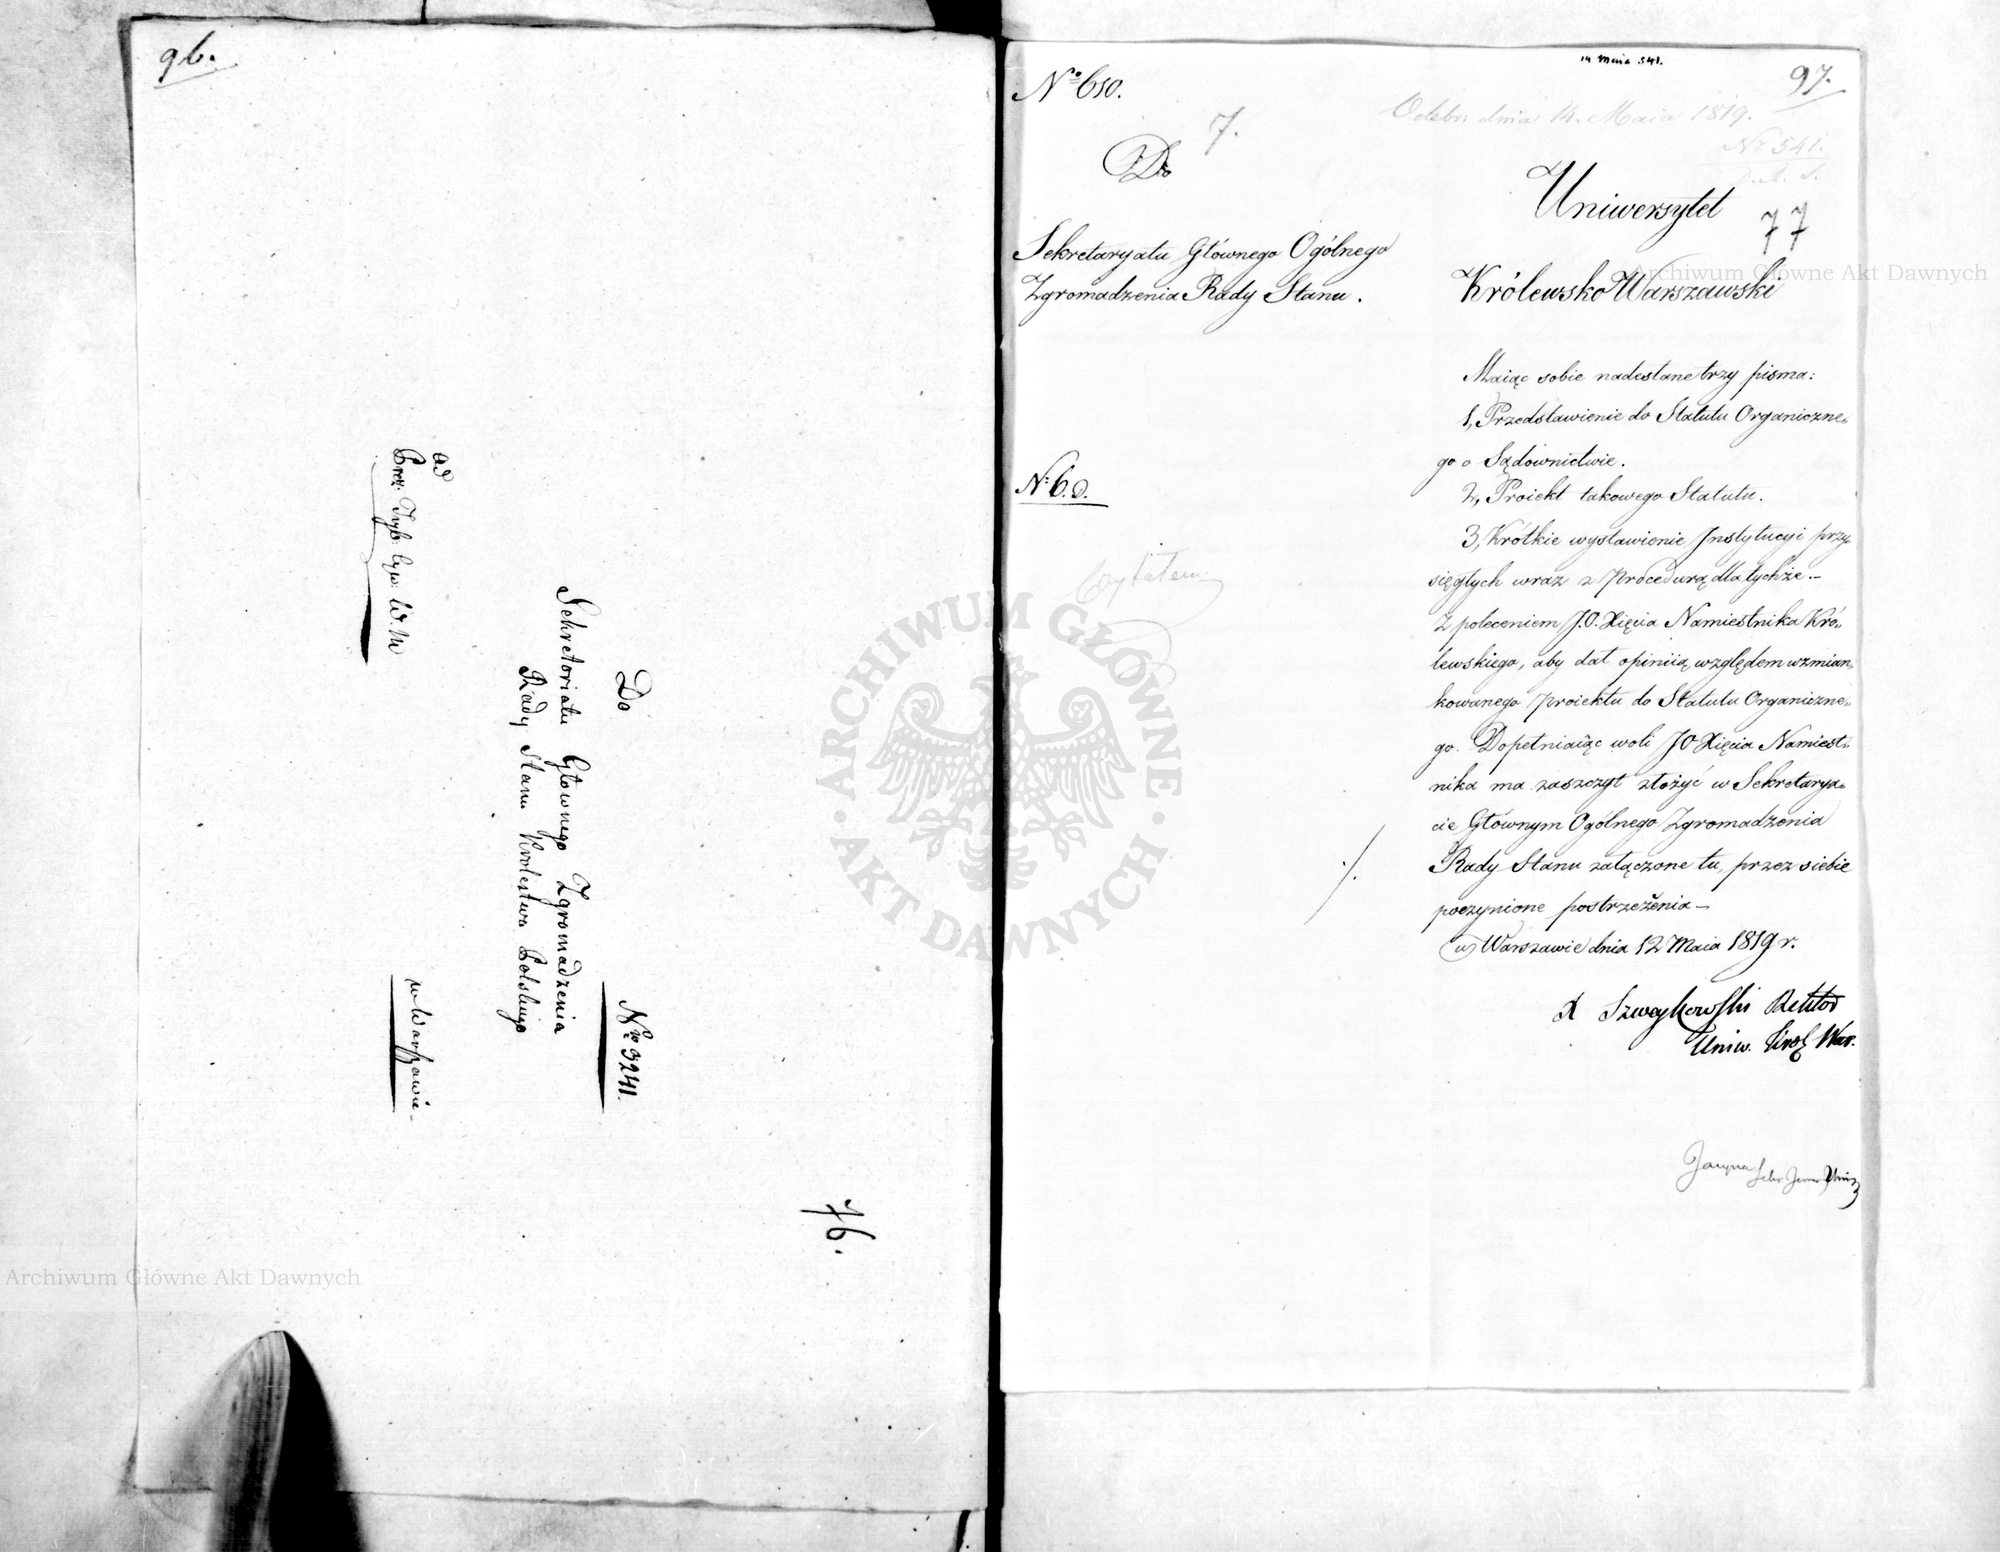 96.
Do
Sekretoriatu Głownego Zgromadzenia
Rady Stanu Krolestwa Polskiego
Nro 3241.
ad
Prez. Tryb. Cyw. W. M
w Warszawie.
76.
14 Maia 541.
97.
No 610.
7.
Odebr. dnia 14. Maia 1819.
No 541.
77
Do
Sekretaryatu Głównego Ogólnego
Zgromadzenia Rady Stanu.
N. 6. d.
Czytałem
Uniwersytet
Królewsko Warszawski
Maiąc sobie nadesłane trzy pisma:
1, Przedstawienie do Statutu Organiczne„
go o Sądownictwie.
2, Proiekt takowego Statutu.
3, Krótkie wystawienie Instytucyi przy„
sięgłych wraz z Procedurą dla tychże.–
z poleceniem J.O. Xięcia Namiestnika Kró„
lewskiego, aby dał opiniią względem wzmian„
kowanego proiektu do Statutu Organiczne„
go. Dopełniaiąc woli JO Xięcia Namiest„
nika ma zaszczyt złożyć w Sekretarya„
cie Głównym Ogólnego Zgromadzenia
Rady Stanu załączone tu, przez siebie
poczynione postrzeżenia –
w Warszawie dnia 12 Maia 1819 r.
X Szweykowski Rektor
Uniw. Król War.
ARCHIWUM GŁÓWNE AKT DAWNYCH
Archiwum Główne Akt Dawnych
Archiwum Główne Akt Dawnych